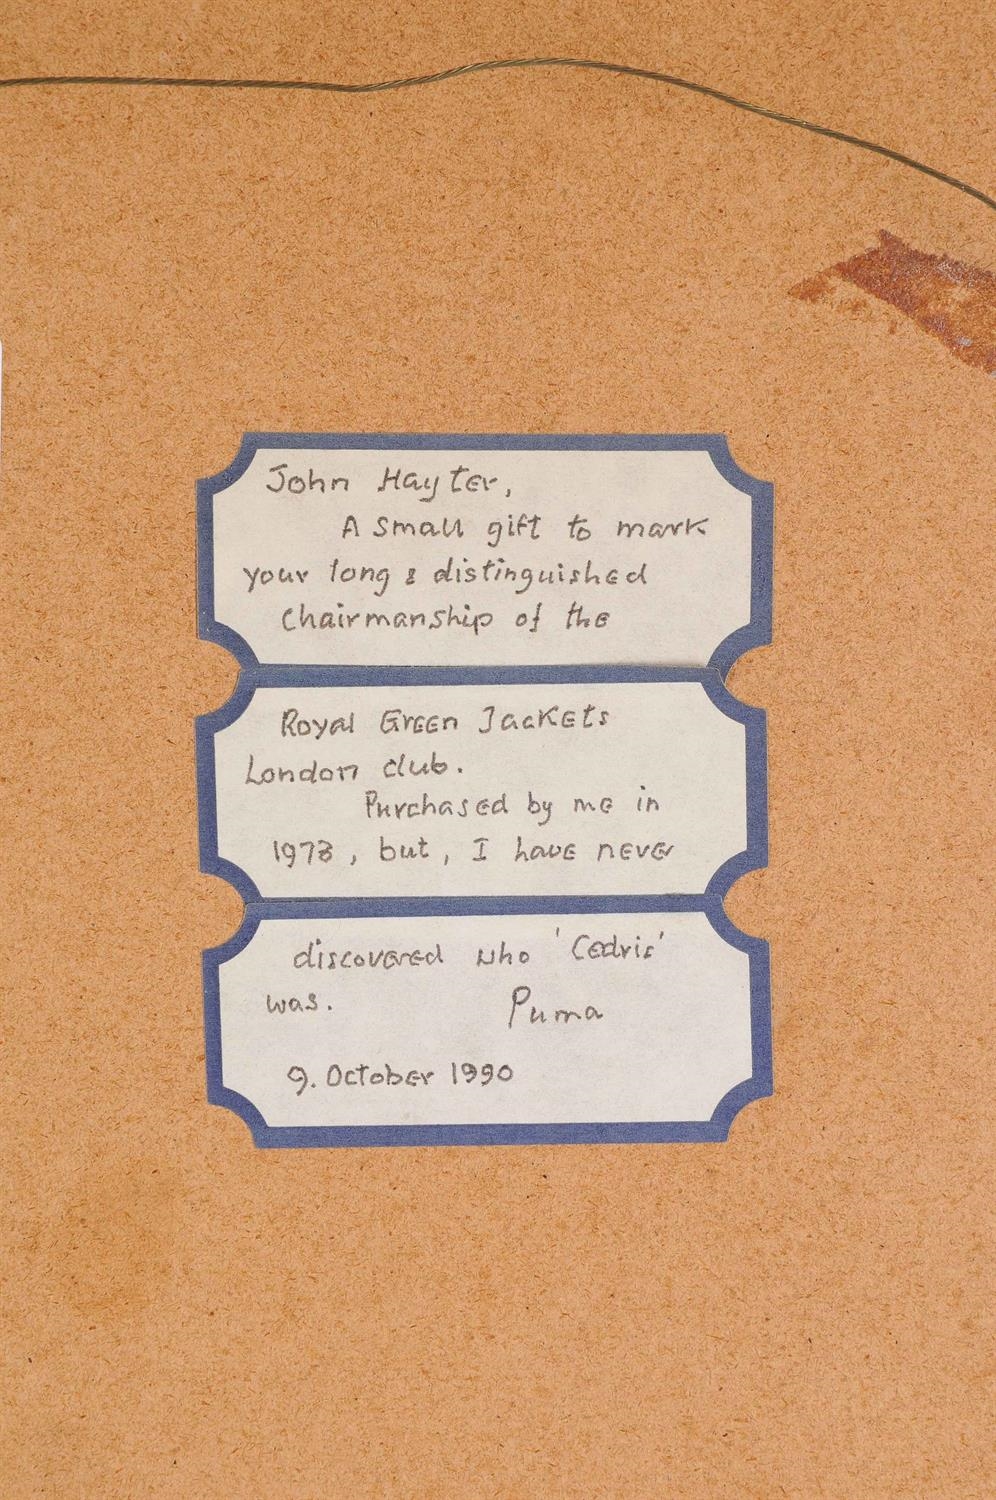 John Hayter,
A small gift to mark
your long & distinguished
Chairmanship of the
Royal Green Jackets
London club.
Purchased by me in
1973, but, I have never
discovered who 'Cedric'
was. Puma
9. October 1990